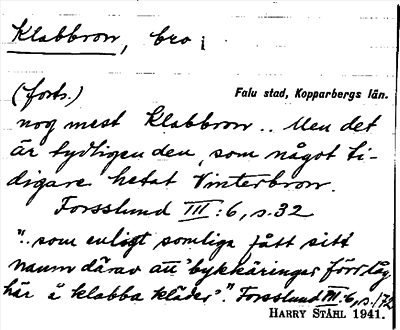 Klabbron, bro i
Falu stad, Kopparbergs län.
(forts.)
nog mest Klabbron .. Men det
är tydligen den, som något ti-
digare hetat Vinterbron.
Forsslund III:6, s. 32
".. som enligt somliga fått sitt
namn därav att 'bykkäringar förr låg
här å klabba kläder'." Forsslund III:6, s. 172
HARRY STÅHL 1941.